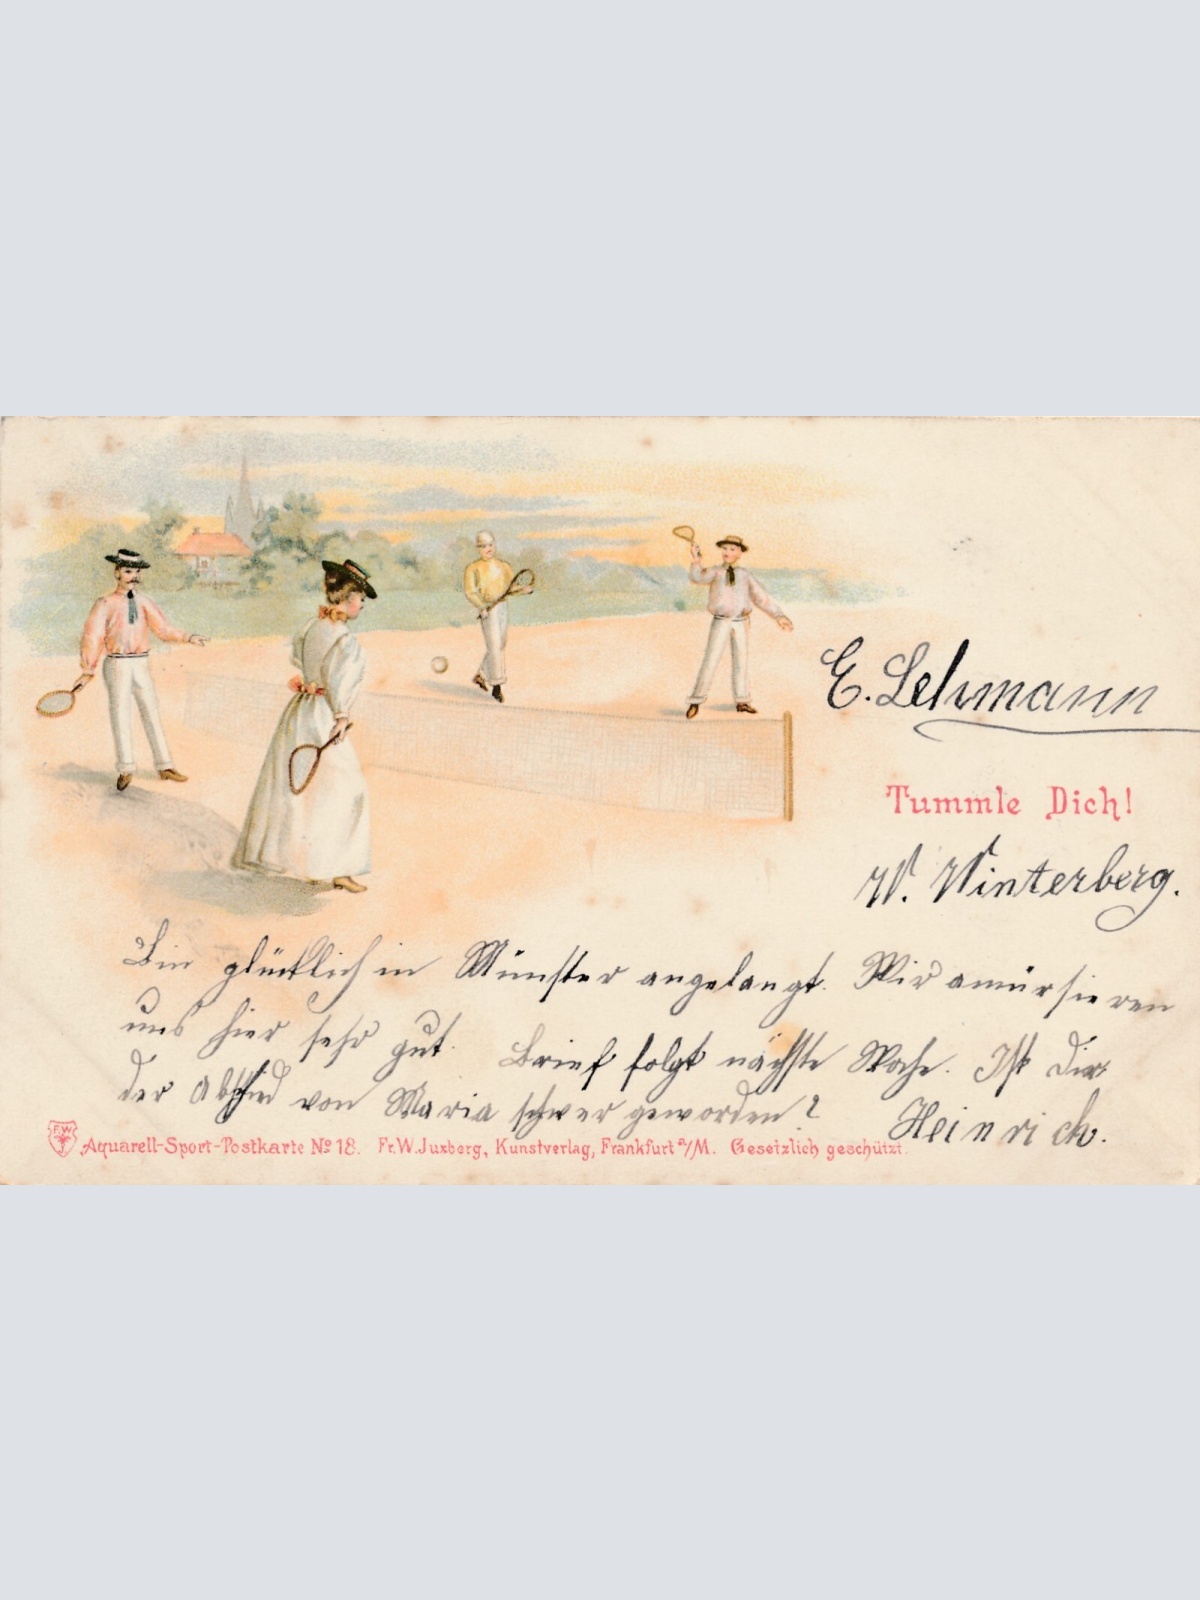 E. Lehmann
Tummle Dich!
W. Winterberg.
Bin glücklich in Münster angelangt. Wir amürsieren
uns hier sehr gut. Brief folgt nächste Woche. Ist Dir
der Abschied von Maria schwer geworden?
Heinrich.
F.W. Aquarell-Sport-Postkarte No 18. Fr. W. Juxberg, Kunstverlag, Frankfurt a/M. Gesetzlich geschützt.